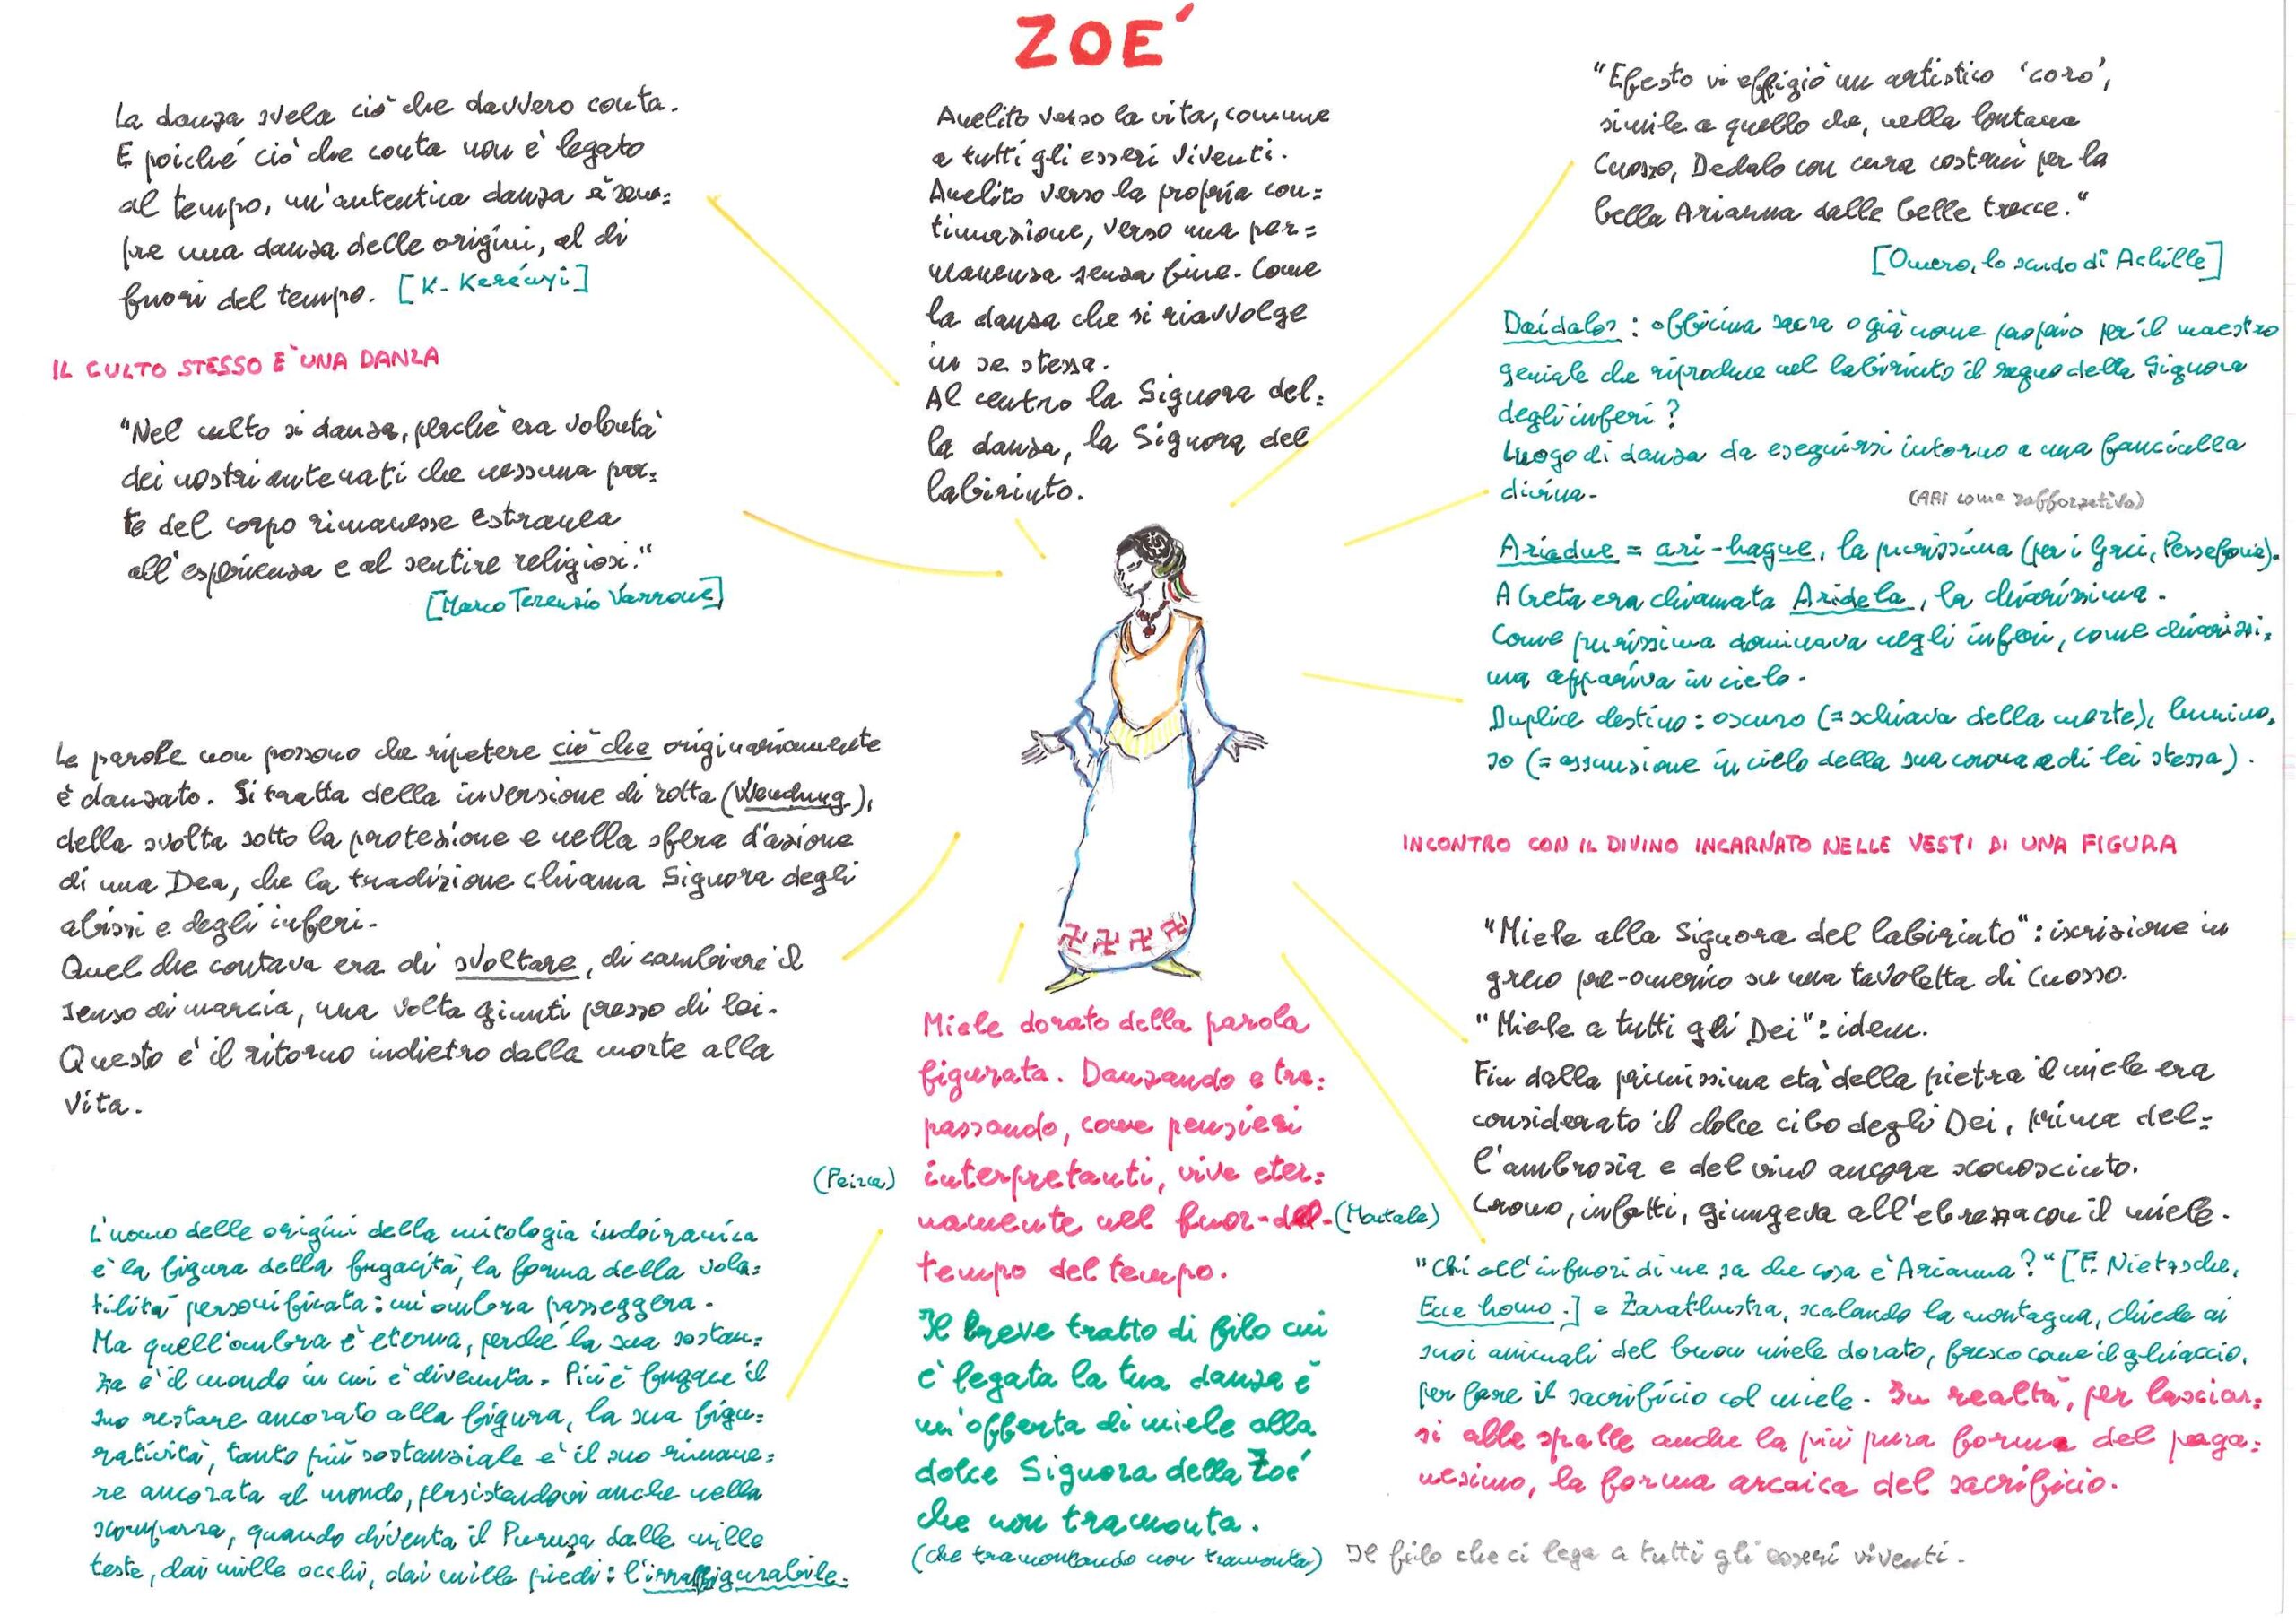 ZOE'
La danza svela ciò che davvero conta.
E poiché ciò che conta non è legato
al tempo, un'autentica danza è sem=
pre una danza delle origini, al di
fuori del tempo. [K. Kerényi]
IL CULTO STESSO E' UNA DANZA
"Nel culto si danza, perché era volontà
dei nostri antenati che nessuna par=
te del corpo rimanesse estranea
all'esperienza e al sentire religiosi."
[Marco Terenzio Varrone]
Le parole non possono che ripetere ciò che originariamente
è danzato. Si tratta della inversione di rotta (Wendung),
della svolta sotto la protezione e nella sfera d'azione
di una Dea, che la tradizione chiama Signora degli
abissi e degli inferi.
Quel che contava era di svoltare, di cambiare il
senso di marcia, una volta giunti presso di lei.
Questo è il ritorno indietro dalla morte alla
vita.
L'uomo delle origini della mitologia indoiranica
è la figura della fugacità, la forma della vola=
tilità personificata: un'ombra passeggera.
Ma quell'ombra è eterna, perché la sua sostan=
za è il mondo in cui è divenuta. Più è fugace il
suo restare ancorato alla figura, la sua figu=
ratività, tanto più sostanziale è il suo rimane=
re ancorata al mondo, persistendovi anche nella
scomparsa, quando diventa il Purusa dalle mille
teste, dai mille occhi, dai mille piedi: l'irraffigurabile.
Anelito verso la vita, comune
a tutti gli esseri viventi.
Anelito verso la propria con=
tinuazione, verso una per=
manenza senza fine. Come
la danza che si riavvolge
in se stessa.
Al centro la Signora del=
la danza, la Signora del
labirinto.
Miele dorato della parola
figurata. Danzando e tra=
passando, come pensieri
(Peirce) interpretanti, vive eter=
namente nel fuor-del- (Montale)
tempo del tempo.
Il breve tratto di filo cui
è legata la tua danza è
un'offerta di miele alla
dolce Signora della Zoé
che non tramonta.
(che tramontando non tramonta)
"Efesto vi effigiò un artistico 'coro',
simile a quello che, nella lontana
Cnosso, Dedalo con cura costruì per la
bella Arianna dalle belle trecce."
[Omero, lo scudo di Achille]
Daídalos: officina sacra o già nome proprio per il maestro
geniale che riproduce nel labirinto il regno della Signora
degli inferi?
Luogo di danza da eseguirsi intorno a una fanciulla
divina.
(ARI come rafforzativo)
Ariadne = ari-hagne, la purissima (per i Greci, Persefone).
A Creta era chiamata Aridela, la chiarissima.
Come purissima dominava negli inferi, come chiarissi=
ma appariva in cielo.
Duplice destino: oscuro (= schiava della morte), lumino=
so (= assunzione in cielo della sua corona e di lei stessa).
INCONTRO CON IL DIVINO INCARNATO NELLE VESTI DI UNA FIGURA
"Miele alla Signora del labirinto": iscrizione in
greco pre-omerico su una tavoletta di Cnosso.
"Miele a tutti gli Dei": idem.
Fin dalla primissima età della pietra il miele era
considerato il dolce cibo degli Dei, prima del=
l'ambrosia e del vino ancora sconosciuto.
Crono, infatti, giungeva all'ebrezza con il miele.
"Chi all'infuori di me sa che cosa è Arianna?" [F. Nietzsche,
Ecce homo.] e Zarathustra, scalando la montagna, chiede ai
suoi animali del buon miele dorato, fresco come il ghiaccio,
per fare il sacrificio col miele. In realtà, per lasciar=
si alle spalle anche la più pura forma del paga=
nesimo, la forma arcaica del sacrificio.
Il filo che ci lega a tutti gli esseri viventi.